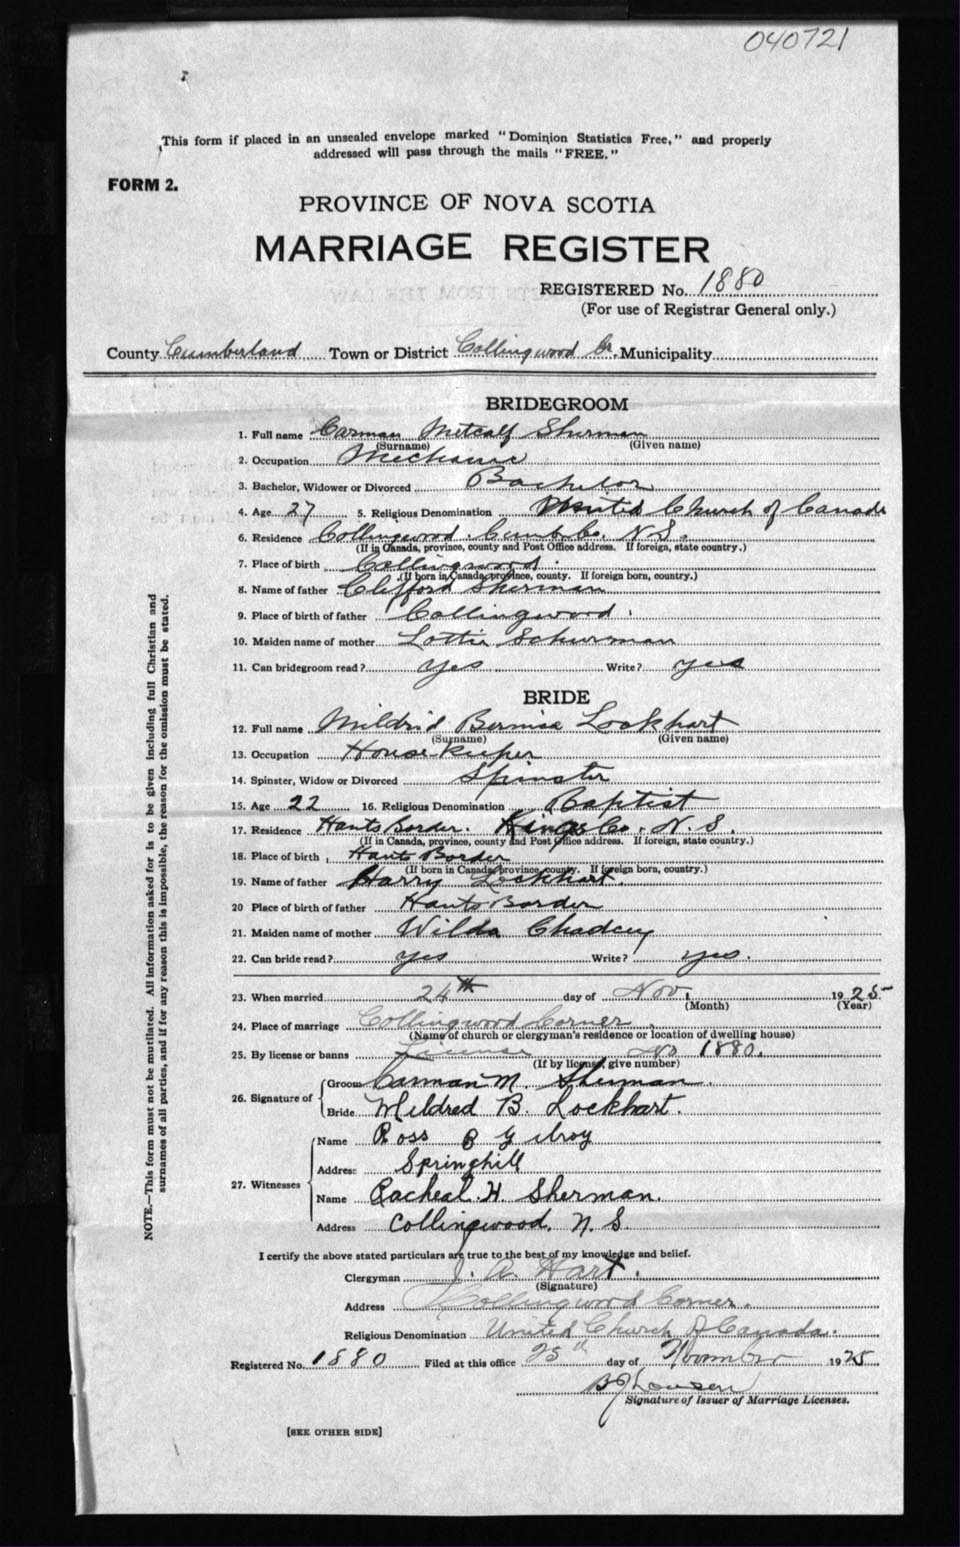 040721
This form if placed in an unsealed envelope marked "Dominion Statistics Free," and properly
addressed will pass through the mails "FREE."
FORM 2.
PROVINCE OF NOVA SCOTIA
MARRIAGE REGISTER
REGISTERED No. 1880
(For use of Registrar General only.)
County Cumberland Town or District Collingwood Cr. Municipality
BRIDEGROOM
1. Full name Carman Metcalf Sherman
(Surname) (Given name)
2. Occupation Mechanic
3. Bachelor, Widower or Divorced Bachelor
4. Age 27 5. Religious Denomination United Church of Canada
6. Residence Collingwood Cumb. Co. N. S.
(If in Canada, province, county and Post Office address. If foreign, state country.)
7. Place of birth Collingwood
(If born in Canada, province, county. If foreign born, country.)
8. Name of father Clifford Sherman
9. Place of birth of father Collingwood
10. Maiden name of mother Lottie Schurman
11. Can bridegroom read? Yes Write? yes
BRIDE
12. Full name Mildrid Bernice Lockhart
(Surname) (Given name)
13. Occupation House-keeper
14. Spinster, Widow or Divorced Spinster
15. Age 22 16. Religious Denomination Baptist
17. Residence Hants Border. Kings Co. N. S.
(If in Canada, province, county and Post Office address. If foreign, state country.)
18. Place of birth Hants Border
(If born in Canada, province, county. If foreign born, country.)
19. Name of father Harry Lockhart.
20 Place of birth of father Hants Border
21. Maiden name of mother Wilda
22. Can bride read? yes Write? yes.
23. When married 24th day of Nov. 1925
(Month) (Year)
24. Place of marriage Collingwood Corner
(Name of church or clergyman's residence or location of dwelling house)
25. By license or banns License No 1880.
(If by license, give number)
26. Signature of
Groom Carman M. Sherman.
Bride Mildred B. Lockhart.
27. Witnesses
Name Ross B Gilroy
Address Springhill
Name Racheal H Sherman.
Address Collingwood, N. S
I certify the above stated particulars are true to the best of my knowledge and belief.
Clergyman J. A. Hart.
(Signature)
Address Collingwood Corner.
Religious Denomination United Church of Canada.
Registered No. 1880 Filed at this office 25th day of November 1925
Signature of Issuer of Marriage Licenses.
[SEE OTHER SIDE]
NOTE.—This form must not be mutilated. All information asked for is to be given including full Christian and
surnames of all parties, and if for any reason this is impossible, the reason for the omission must be stated.